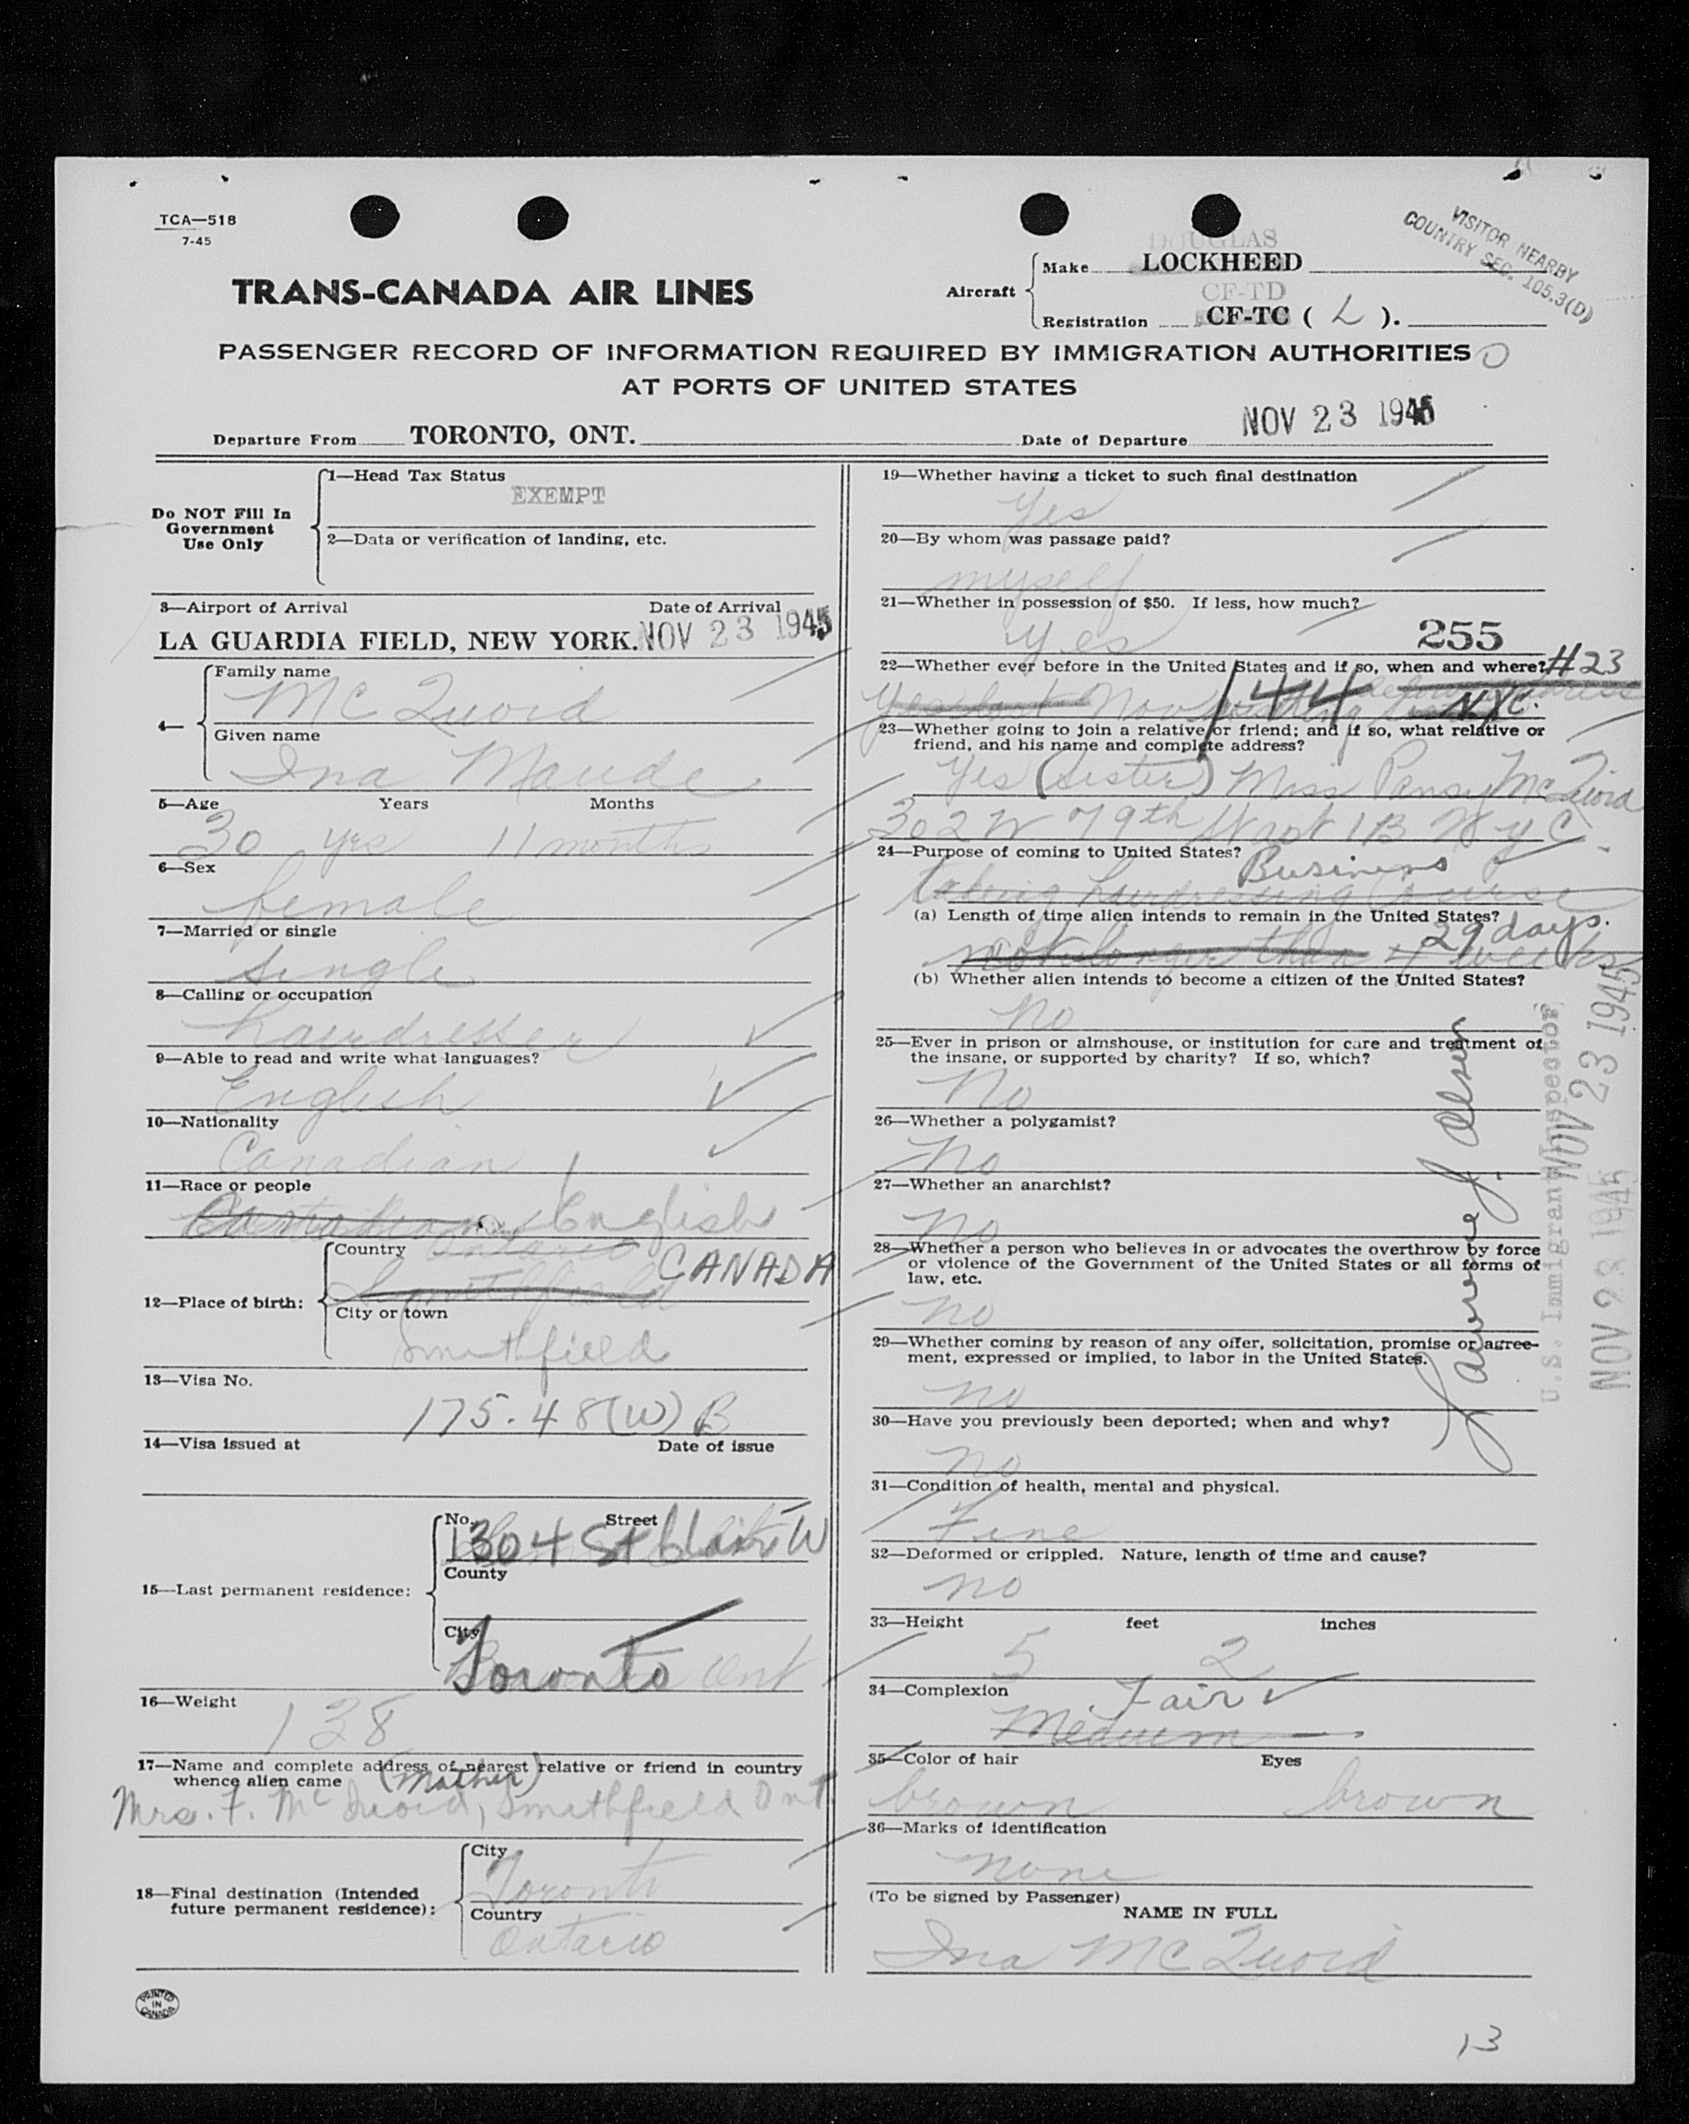 TCA—518
7-45
VISITOR NEARBY
COUNTRY SEC. 105.3(D)
DOUGLAS
TRANS-CANADA AIR LINES
Aircraft
Make LOCKHEED
CF-TD
Registration CF-TC ( L ).
PASSENGER RECORD OF INFORMATION REQUIRED BY IMMIGRATION AUTHORITIES
AT PORTS OF UNITED STATES
Departure From TORONTO, ONT. Date of Departure NOV 23 1945
Do NOT Fill In
Government
Use Only
1—Head Tax Status
EXEMPT
2—Data or verification of landing, etc.
3—Airport of Arrival Date of Arrival
LA GUARDIA FIELD, NEW YORK. NOV 23 1945
4—
Family name
McQuoid
Given name
Ina Maude
5—Age Years Months
30 yrs 11 months
6—Sex
female
7—Married or single
single
8—Calling or occupation
hairdresser
9—Able to read and write what languages?
English
10—Nationality
Canadian
11—Race or people
Canadian English
12—Place of birth:
Country Ontario
Smithfield CANADA
City or town
Smithfield
13—Visa No.
175.48(W)B
14—Visa issued at Date of issue
15—Last permanent residence:
No. Street
1304 St Clair W
County
City
Toronto Ont
16—Weight
138
17—Name and complete address of nearest relative or friend in country
whence alien came (Mother)
Mrs. F. McQuoid, Smithfield Ont
18—Final destination (Intended
future permanent residence):
City
Toronto
Country
Ontario
PRINTED
IN
CANADA
19—Whether having a ticket to such final destination
Yes
20—By whom was passage paid?
myself
21—Whether in possession of $50. If less, how much?
Yes 255
22—Whether ever before in the United States and if so, when and where? #23
Yes last Nov 1944 NYC.
23—Whether going to join a relative or friend; and if so, what relative or
friend, and his name and complete address?
Yes (Sister) Miss Pansy McQuoid
302 W 79th St apt 1B N Y C
24—Purpose of coming to United States? Business
taking hairdressing Course
(a) Length of time alien intends to remain in the United States?
29 days.
not longer than 4 weeks
(b) Whether alien intends to become a citizen of the United States?
No
25—Ever in prison or almshouse, or institution for care and treatment of
the insane, or supported by charity? If so, which?
No
26—Whether a polygamist?
No
27—Whether an anarchist?
No
28—Whether a person who believes in or advocates the overthrow by force
or violence of the Government of the United States or all forms of
law, etc.
no
29—Whether coming by reason of any offer, solicitation, promise or agree-
ment, expressed or implied, to labor in the United States.
no
30—Have you previously been deported; when and why?
no
31—Condition of health, mental and physical.
Fine
32—Deformed or crippled. Nature, length of time and cause?
no
33—Height feet inches
5 2
34—Complexion Fair
Medium
35—Color of hair Eyes
brown brown
36—Marks of identification
none
(To be signed by Passenger)
NAME IN FULL
Ina McQuoid
Lawrence J.
U.S. Immigrant Inspector
NOV 23 1945
NOV 23 1945
13